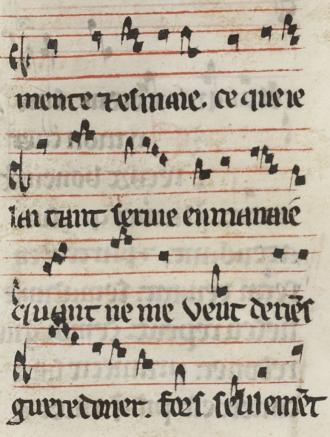 mente ⁊ esmaie. ce que ie
lai tant seruie en manaie
quant ne me veut de riēs
gueredoner. fors seulemēt